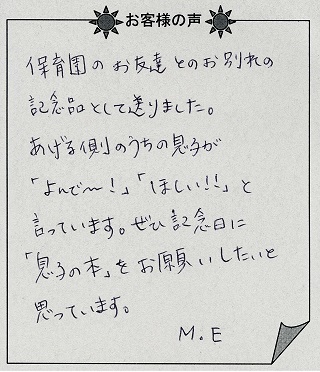 お客様の声
保育園のお友達とのお別れの
記念品として送りました。
あげる側のうちの息子が
「よんで〜!」「ほしい!!」と
言っています。ぜひ記念日に
「息子の本」をお願いしたいと
思っています。
M.E